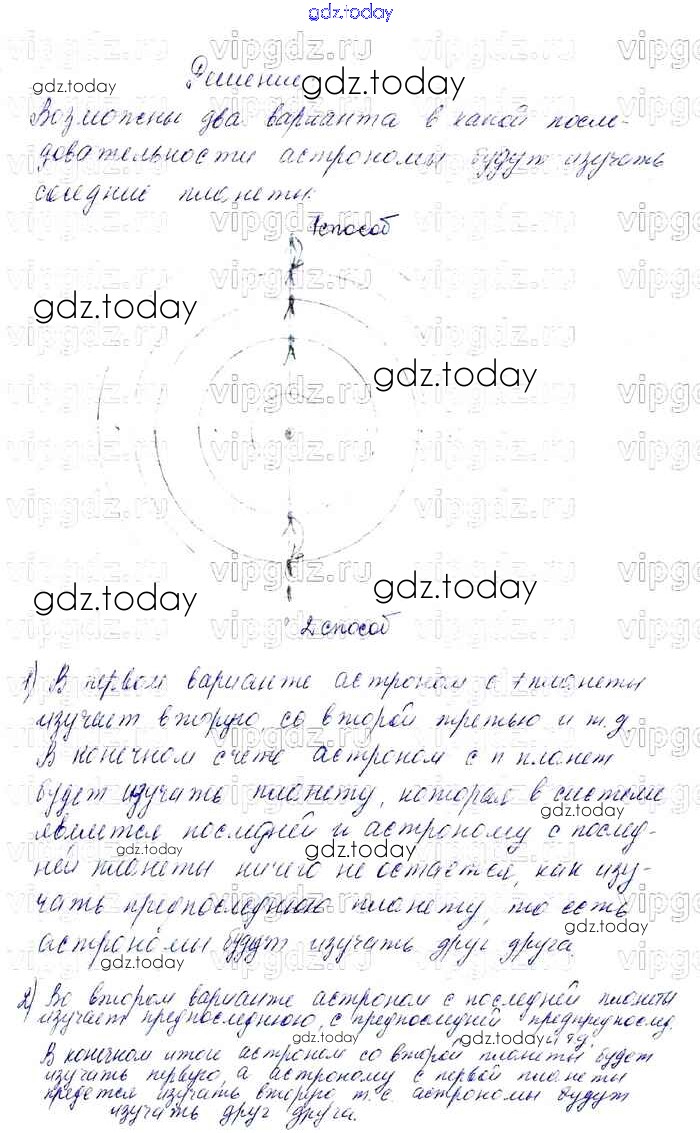 gdz.today
Решение
Возможны два варианта в какой после-
довательности астрономы будут изучать
соседние планеты.
1 способ
gdz.today
gdz.today
gdz.today
gdz.today
gdz.today
2 способ
1) В первом варианте астроном с 1 планеты
изучает вторую со второй третью и т.д
В конечном счете астроном с n планет
будет изучать планету, которая в системе
является последней и астроному с послед-
ней планеты ничего не остается, как изу-
чать предпоследнюю планету, то есть
астрономы будут изучать друг друга.
gdz.today
gdz.today
gdz.today
gdz.today
gdz.today
2) Во втором варианте астроном с последней планеты
изучает предпоследнюю, с предпоследней предпредпослед.
и т.д.
В конечном итоге астроном со второй планеты будет
изучать первую, а астроному с первой планеты
придется изучать вторую т.е. астрономы будут
изучать друг друга.
gdz.today
gdz.today
gdz.today
vipgdz.ru